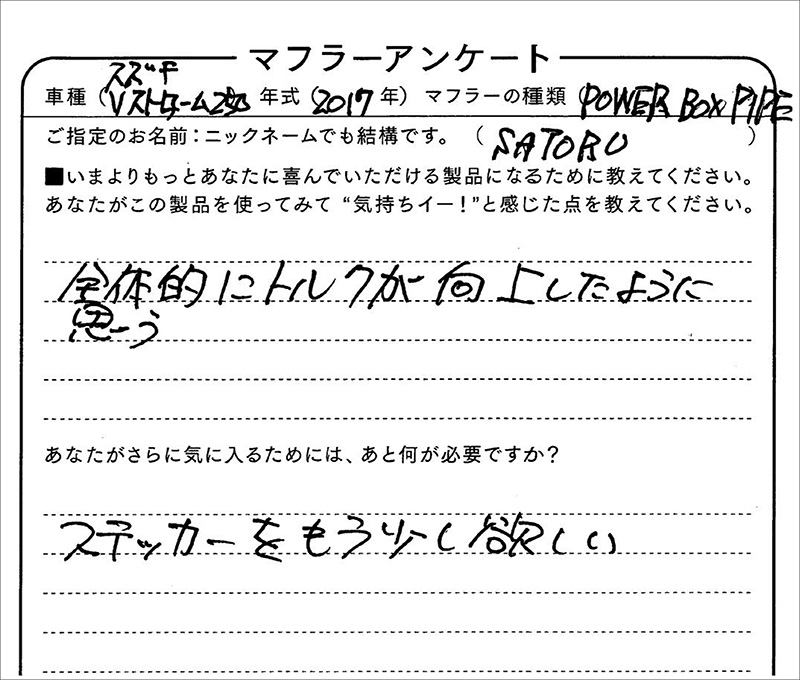 マフラーアンケート
車種（スズキ Vストローム250 年式（2017年）マフラーの種類（POWER BOX PIPE
ご指定のお名前：ニックネームでも結構です。（SATORU）
■いまよりもっとあなたに喜んでいただける製品になるために教えてください。
あなたがこの製品を使ってみて“気持ちイー！”と感じた点を教えてください。
全体的にトルクが向上したように
思う
あなたがさらに気に入るためには、あと何が必要ですか？
ステッカーをもう少し欲しい